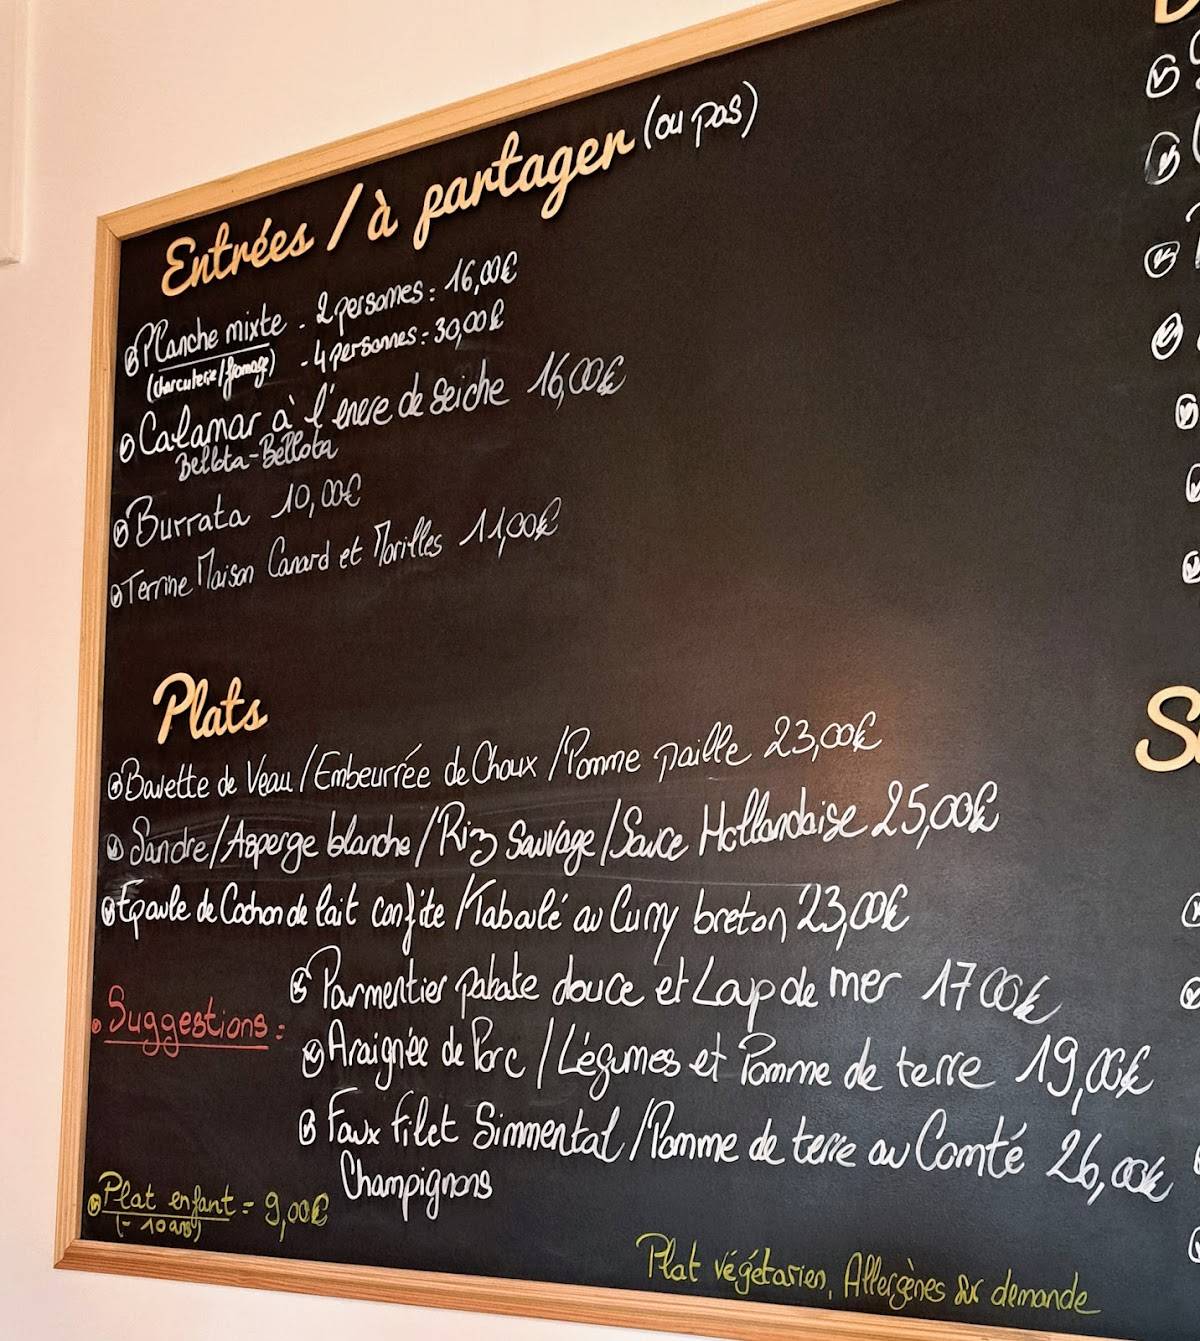 Entrées / à partager (ou pas)
Planche mixte - 2 personnes : 16,00€
(charcuterie/fromage) - 4 personnes : 30,00€
Calamar à l'encre de seiche 16,00€
Bellota-Bellota
Burrata 10,00€
Terrine Maison Canard et Morilles 11,00€
Plats
Bavette de Veau / Embeurrée de Choux / Pomme paille 23,00€
Sandre / Asperge blanche / Riz Sauvage / Sauce Hollandaise 25,00€
Epaule de Cochon de lait confite / Taboulé au Curry breton 23,00€
Suggestions :
Parmentier patate douce et Loup de mer 17 00€
Araignée de Porc / Légumes et Pomme de terre 19,00€
Faux Filet Simmental / Pomme de terre au Comté 26,00€
Champignons
Plat enfant = 9,00€
(- 10 ans)
Plat végétarien, Allergènes sur demande